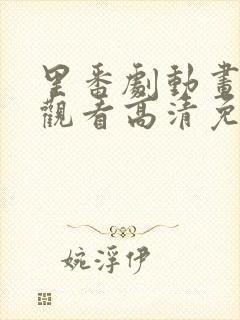 里番劇動畫
觀看高清免
婉浮伊